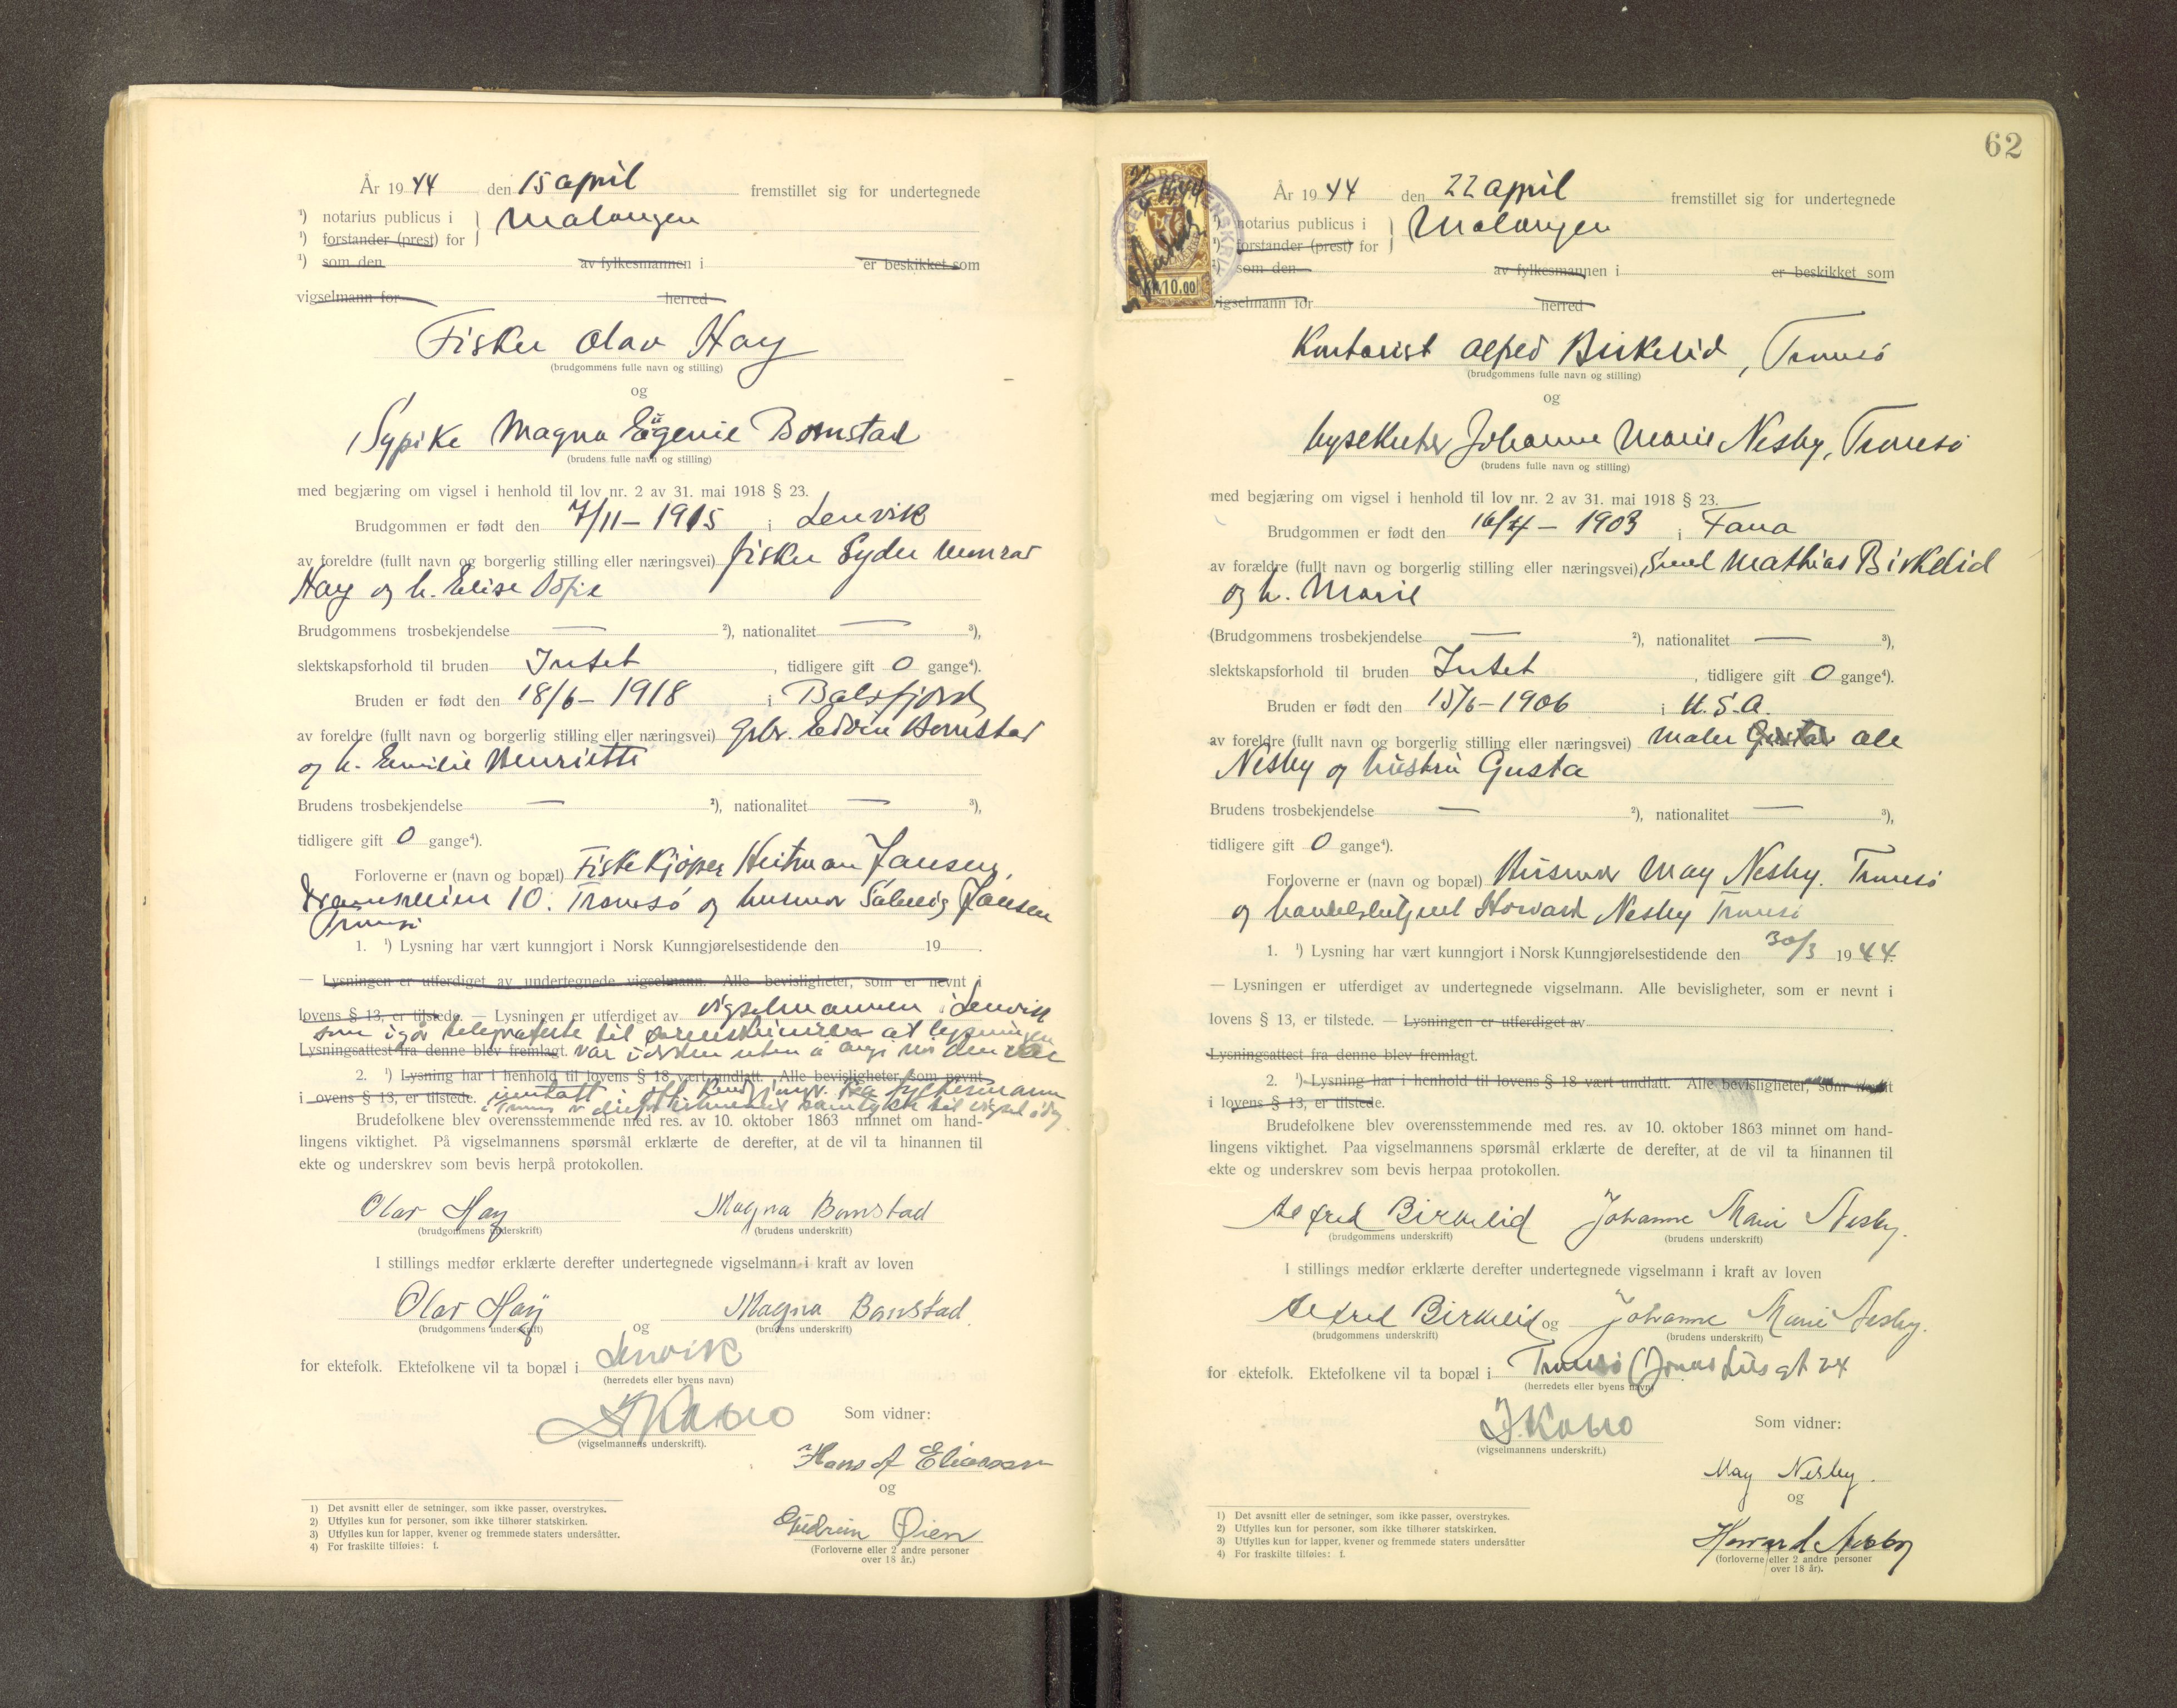 År 1944 den 15 april fremstillet sig for undertegnede
¹) notarius publicus i } Malangen
¹) forstander (prest) for
¹) som den av fylkesmannen i er beskikket som
vigselmann for herred
Fisker Olav Hay
(brudgommens fulle navn og stilling)
og
Sypike Magna Eugenie Bomstad
(brudens fulle navn og stilling)
med begjæring om vigsel i henhold til lov nr. 2 av 31. mai 1918 § 23.
Brudgommen er født den 7/11 – 1915 i Lenvik
av foreldre (fullt navn og borgerlig stilling eller næringsvei) fisker Eyder
Hay og h. Elise
Brudgommens trosbekjendelse — ²), nationalitet — ³),
slektskapsforhold til bruden Intet, tidligere gift 0 gange⁴).
Bruden er født den 18/6 – 1918 i Balsfjord
av foreldre (fullt navn og borgerlig stilling eller næringsvei) Gbr. Edvin Bomstad
og h. Emilie Henriette
Brudens trosbekjendelse — ²), nationalitet — ³),
tidligere gift 0 gange⁴).
Forloverne er (navn og bopæl) Fiskekjøper Heitman Jansen,
10. Tromsø og husmor Solveig Jansen
Tromsø
1. ¹) Lysning har vært kunngjort i Norsk Kunngjørelsestidende den 19 .
— Lysningen er utferdiget av undertegnede vigselmann. Alle bevisligheter, som er nevnt i
lovens § 13, er tilstede. — Lysningen er utferdiget av vigselmannen i Lenvik
som igår telegraferte til sorenskriveren at lysningen
Lysningsattest fra denne blev fremlagt. var i orden uten å angi når den var
2. ¹) Lysning har i henhold til lovens § 18 vært undlatt. Alle bevisligheter, som nevnt
i lovens § 13, er tilstede. inntatt i off. kund. fra fylkesmann
i Troms samtykke til vigsel idag
Brudefolkene blev overensstemmende med res. av 10. oktober 1863 minnet om hand-
lingens viktighet. På vigselmannens spørsmål erklærte de derefter, at de vil ta hinannen til
ekte og underskrev som bevis herpå protokollen.
Olav Hay Magna Bomstad
(brudgommens underskrift) (brudens underskrift)
I stillings medfør erklærte derefter undertegnede vigselmann i kraft av loven
Olav Hay og Magna Bomstad.
(brudgommens underskrift) (brudens underskrift)
for ektefolk. Ektefolkene vil ta bopæl i Lenvik
(herredets eller byens navn)
Som vidner:
(vigselmannens underskrift).
Hans A Eliassen
og
Gudrun Øien
(Forloverne eller 2 andre personer
over 18 år.)
1) Det avsnitt eller de setninger, som ikke passer, overstrykes.
2) Utfylles kun for personer, som ikke tilhører statskirken.
3) Utfylles kun for lapper, kvener og fremmede staters undersåtter.
4) For fraskilte tilføies: f.
62
Kr. 10.00
År 1944 den 22 april fremstillet sig for undertegnede
¹) notarius publicus i } Malangen
¹) forstander (prest) for
som den av fylkesmannen i er beskikket som
vigselmann for herred
Kontorist Alfred Birkelid, Tromsø
(brudgommens fulle navn og stilling)
og
Johanne Marie Nesby, Tromsø
(brudens fulle navn og stilling)
med begjæring om vigsel i henhold til lov nr. 2 av 31. mai 1918 § 23.
Brudgommen er født den 16/4 – 1903 i Fana
av forældre (fullt navn og borgerlig stilling eller næringsvei) Smed Mathias Birkelid
og h. Marie
(Brudgommens trosbekjendelse — ²), nationalitet — ³),
slektskapsforhold til bruden Intet, tidligere gift 0 gange⁴).
Bruden er født den 15/6 – 1906 i U.S.A.
av foreldre (fullt navn og borgerlig stilling eller næringsvei) maler Gustav Ole
Nesby og hustru Gusta
Brudens trosbekjendelse — ²), nationalitet — ³),
tidligere gift 0 gange⁴).
Forloverne er (navn og bopæl) Husmor May Nesby. Tromsø
og handelsbetjent Howard Nesby Tromsø
1. ¹) Lysning har vært kunngjort i Norsk Kunngjørelsestidende den 30/3 1944.
— Lysningen er utferdiget av undertegnede vigselmann. Alle bevisligheter, som er nevnt i
lovens § 13, er tilstede. — Lysningen er utferdiget av .
Lysningsattest fra denne blev fremlagt.
2. ¹) Lysning har i henhold til lovens § 18 vært undlatt. Alle bevisligheter, som nevnt
i lovens § 13, er tilstede.
Brudefolkene blev overensstemmende med res. av 10. oktober 1863 minnet om hand-
lingens viktighet. Paa vigselmannens spørsmål erklærte de derefter, at de vil ta hinannen til
ekte og underskrev som bevis herpaa protokollen.
Alfred Birkelid Johanne Marie Nesby.
(brudgommens underskrift) (brudens underskrift)
I stillings medfør erklærte derefter undertegnede vigselmann i kraft av loven
Alfred Birkelid og Johanne Marie Nesby.
(brudgommens underskrift) (brudens underskrift)
for ektefolk. Ektefolkene vil ta bopæl i Tromsø (Jonas Lies gt 24
(herredets eller byens navn)
Som vidner:
(vigselmannens underskrift.)
May Nesby.
og
Howard Nesby
(forloverne eller 2 andre personer
over 18 år).
1) Det avsnitt eller de setninger, som ikke passer, overstrykes.
2) Utfylles kun for personer, som ikke tilhører statskirken.
3) Utfylles kun for lapper, kvener og fremmede staters undersåtter
4) For fraskilte tilføies: f.